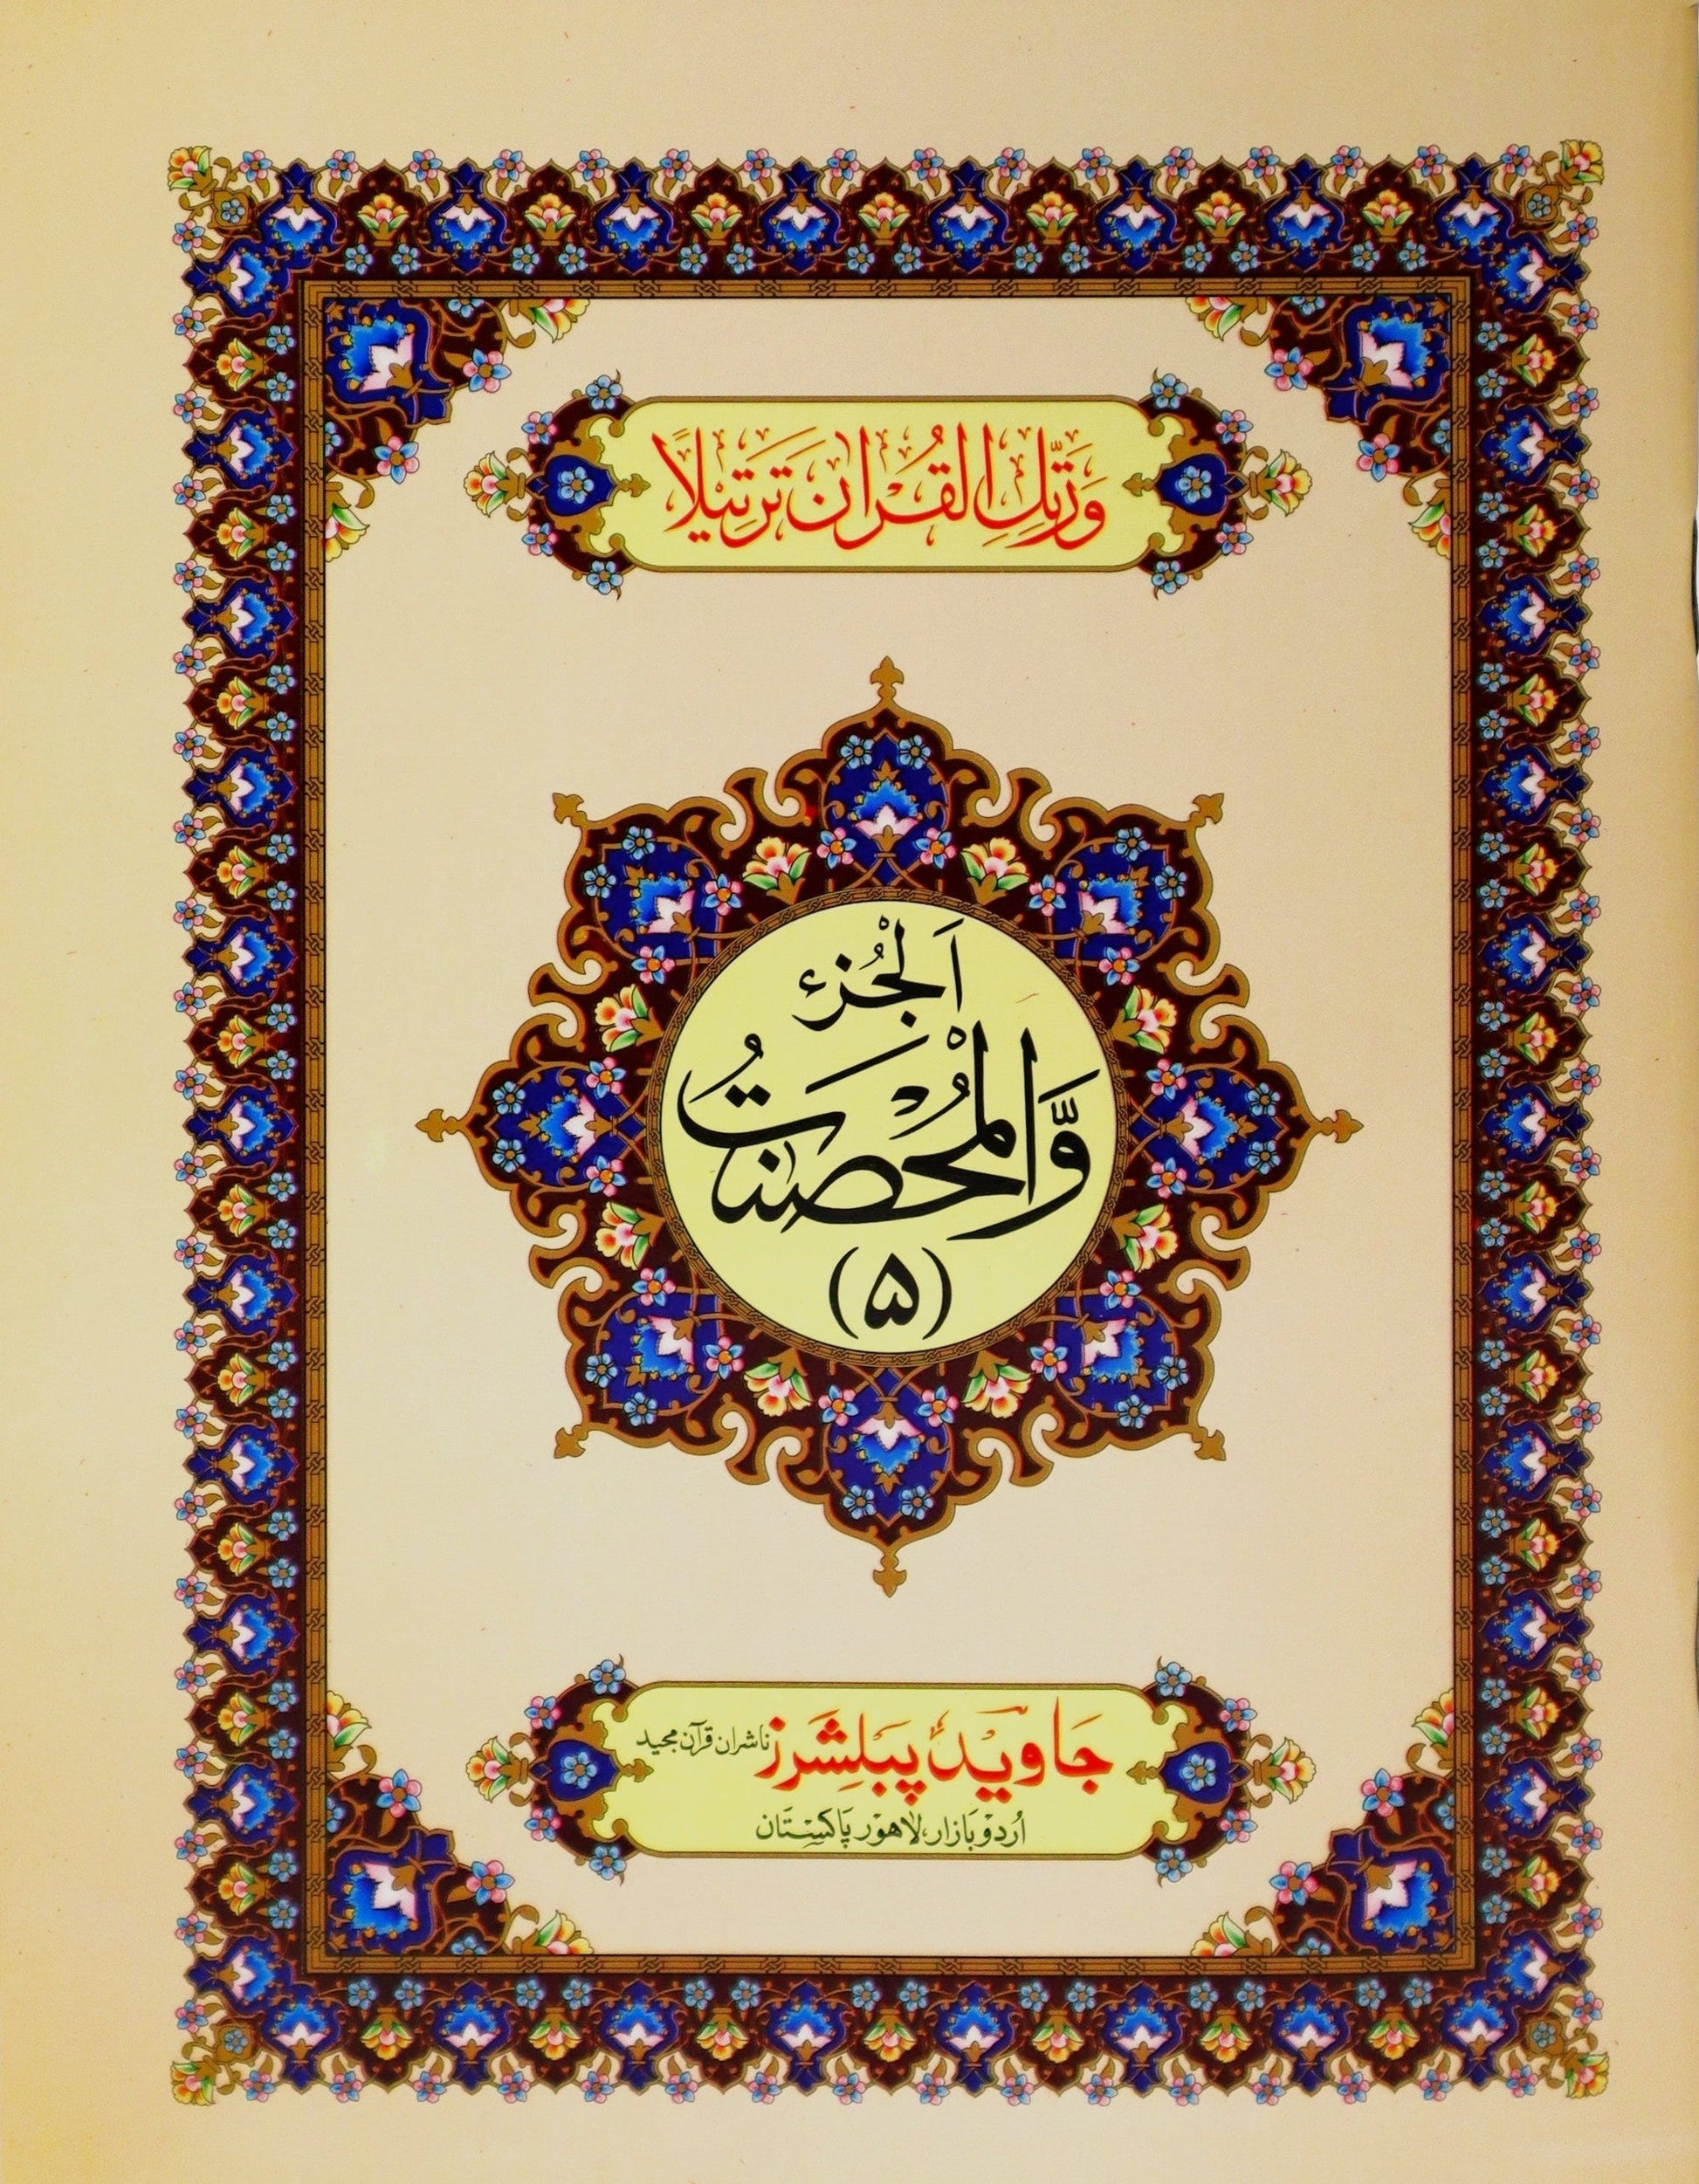 وَرَتِّلِ الْقُرْاٰنَ تَرْتِیْلًا
اَلْجُزْء
وَّالْمُحْصَنٰتُ
(۵)
جَاوید پَبلِشَرز ناشران قرآن مجید
اُردو بَازار، لاهوْر پَاکِسْتَان